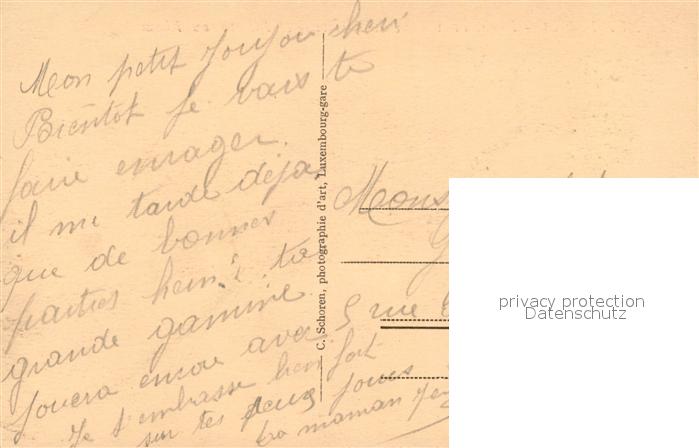 Mon petit Joujou cheri
Bientot je vais te
faire enrager.
il me tarde déja,
que de bonnes
parties hein! ta
grande gamine
jouera encore avec
Je t'embrasse bien fort
sur tes deux joues
ta maman
C. Schoren, photographie d'art, Luxembourg-gare
Mons
5 rue
privacy protection
Datenschutz